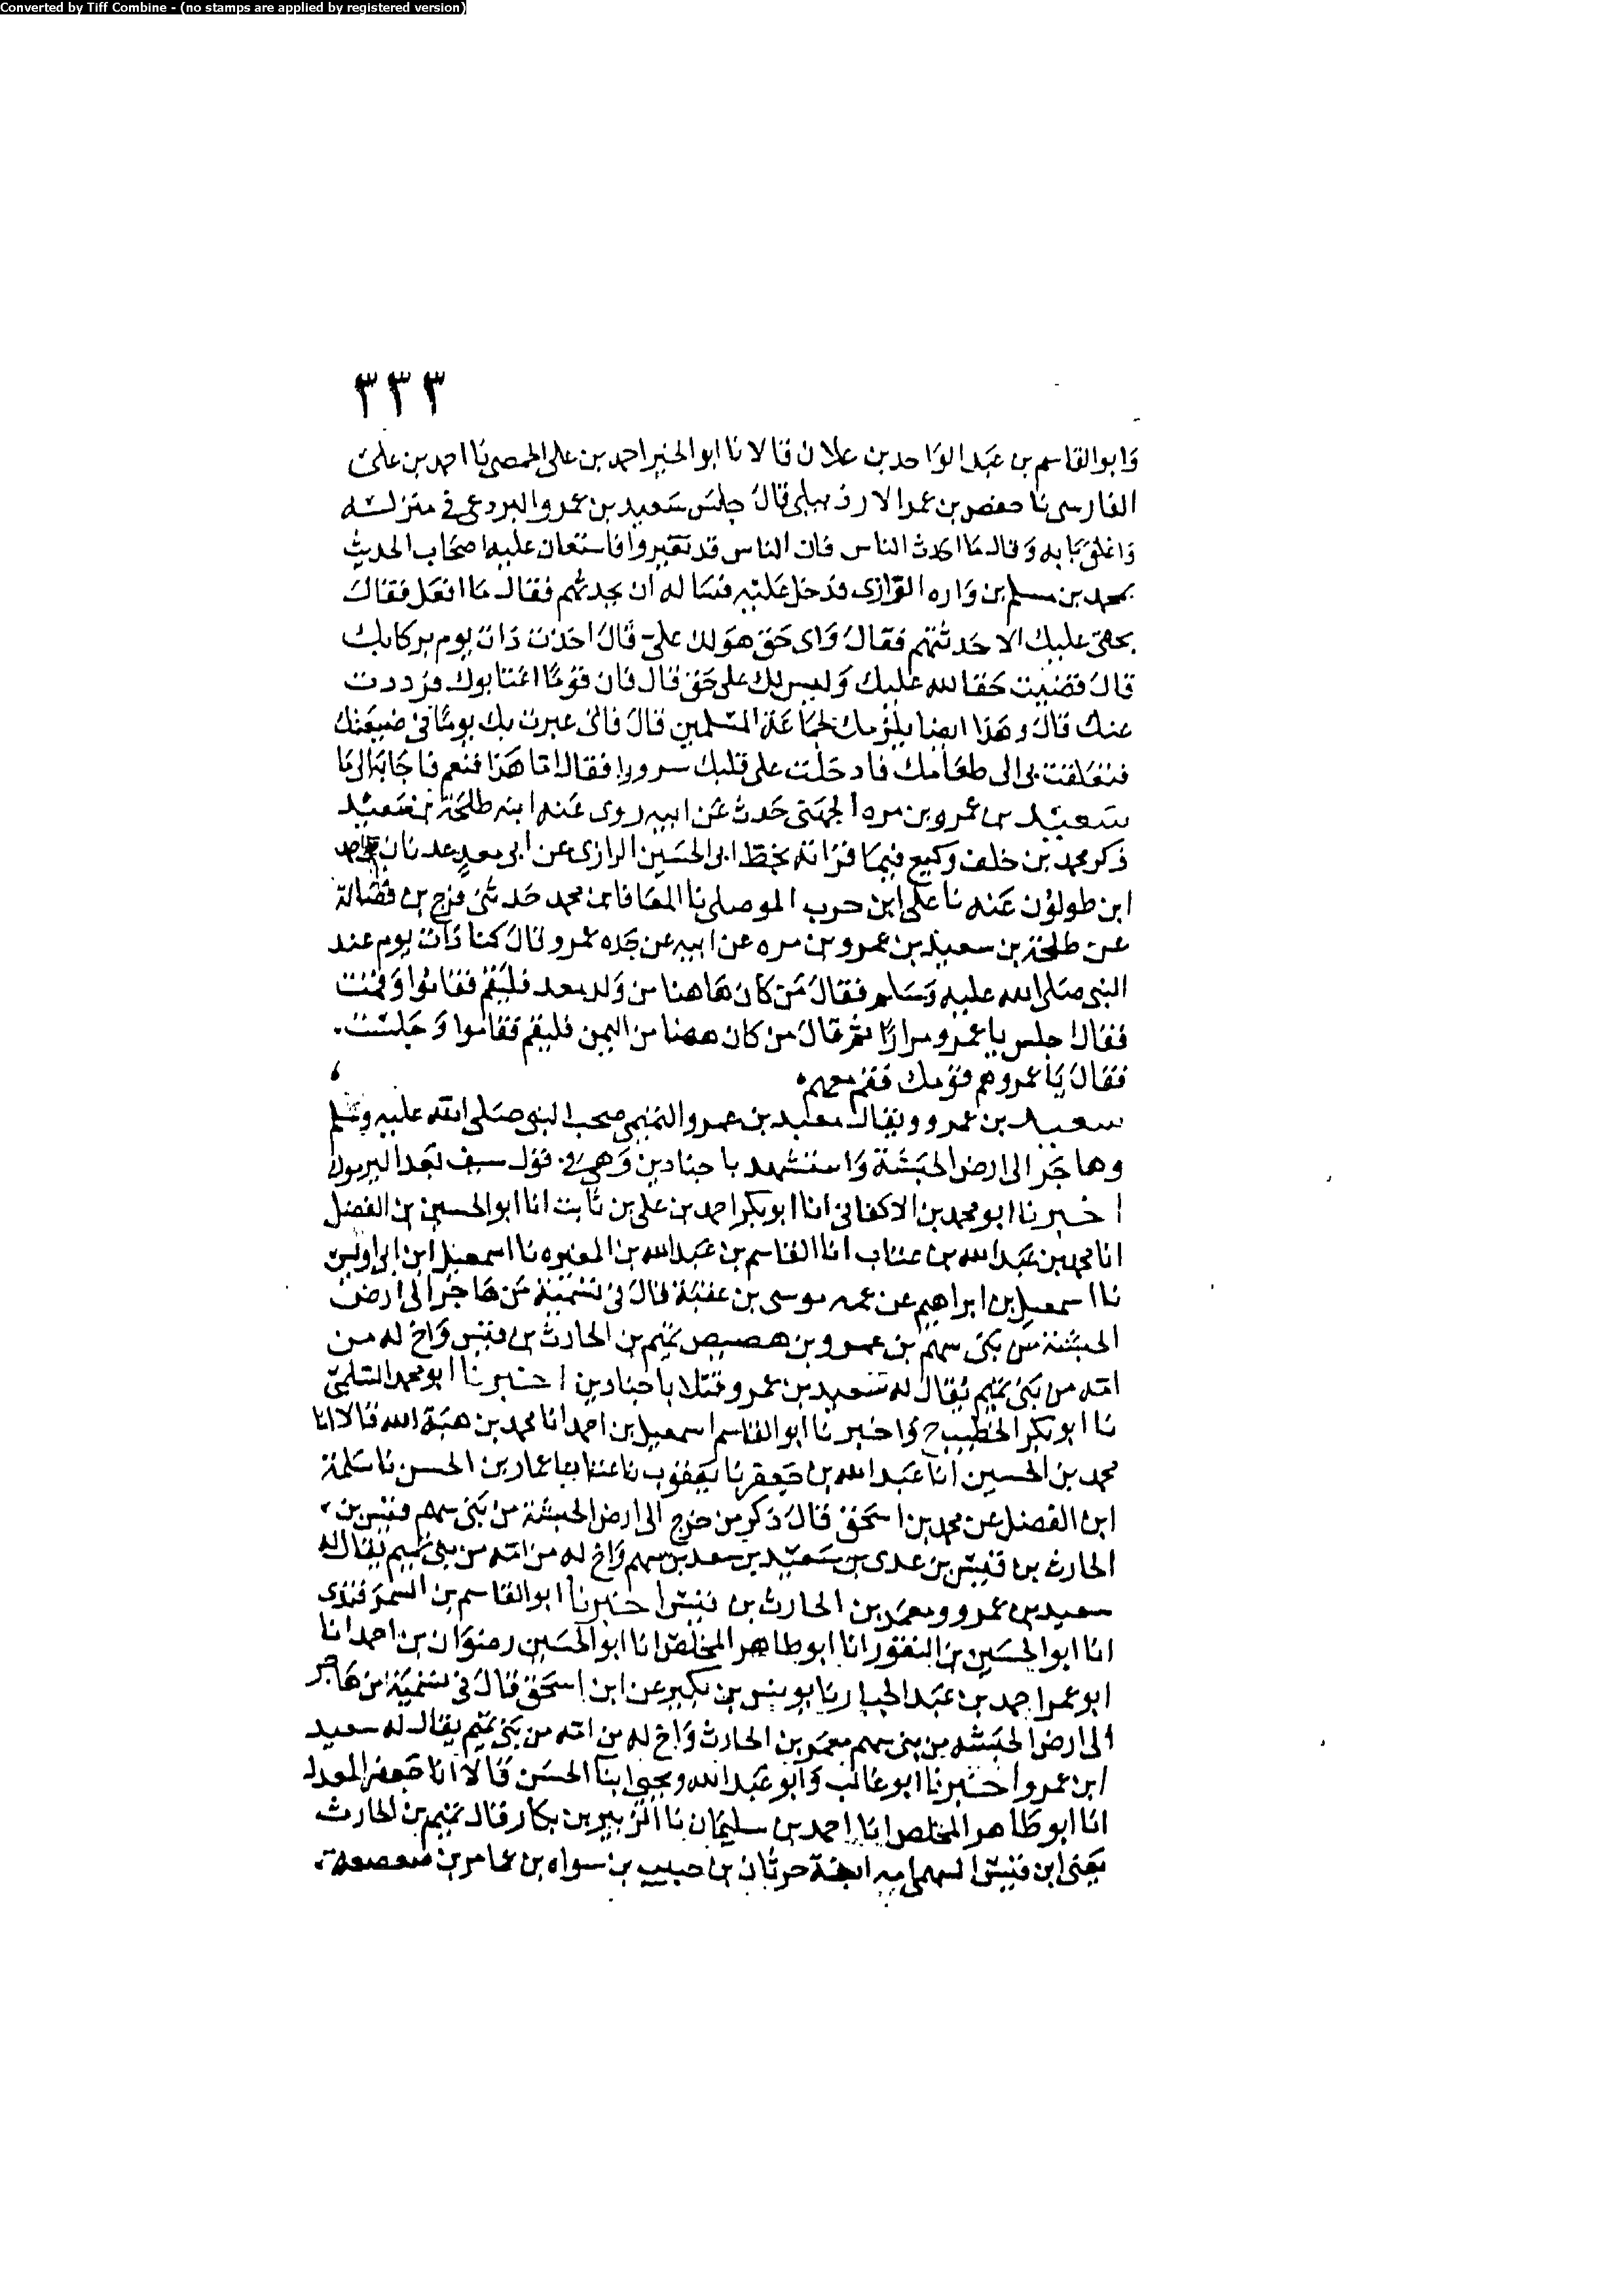 Converted by Tiff Combine - (no stamps are applied by registered version)
٣٣٣
وابو القاسم بن عبد الواحد بن علان قالا نا ابو الخير احمد بن على الحمصى نا احمد بن على
الفارسى نا حفص بن عمر الاردبيلى قال جلس سعيد بن عمرو البردعى فى منزله
واغلق بابه وقال ما احدث الناس فان الناس قد تغيروا فاستعان عليه اصحاب الحديث
بمحمد بن مسلم بن واره الرازى فدخل عليه فساله ان يحدثهم فقال ما افعل فقال
بحقى عليك الا حدثتهم فقال واى حق هو لك على قال اخذت ذات يوم بركابك
قال قضيت حقا لله عليك وليس لك على حق قال فان قوما اغتابوك فرددت
عنك قال وهذا ايضا يلزمك لجماعة المسلمين قال فانى عبرت بك يوما فى ضيعتك
فتعلقت بى الى طعامك فادخلت على قلبك سرورا فقال اما هذا فنعم فاجابه الى ما
سعيد بن عمرو بن مره الجهنى حدث عن ابيه روى عنه ابنه طلحة بن سعيد
ذكر محمد بن خلف وكيع فيما قراته بخط ابى الحسين الرازى عن ابى معد عدنان بن احمد
ابن طولون عنه نا على ابن حرب الموصلى نا المعافا بن محمد حدثنى فرج بن فضالة
عن طلحة بن سعيد بن عمرو بن مره عن ابيه عن جده عمرو قال كنا ذات يوم عند
النبى صلى الله عليه وسلم فقال من كان هاهنا من ولد معد فليقم فقاموا وقمت
فقال اجلس يا عمرو مرارا ثم قال من كان ههنا من اليمن فليقم فقاموا وجلست
فقال يا عمرو هم قومك فقم معهم
سعيد بن عمرو ويقال معبد بن عمرو التميمى صحب النبى صلى الله عليه وسلم
وهاجر الى ارض الحبشة واستشهد باجنادين وهى فى قول سيف بعد اليرموك
اخبرنا ابو محمد بن الاكفانى انا ابو بكر احمد بن على بن ثابت انا ابو الحسين بن الفضل
انا محمد بن عبد الله بن عتاب انا القاسم بن عبد الله بن المغيره نا اسمعيل ابن ابى اويس
نا اسمعيل بن ابراهيم عن عمه موسى بن عقبة قال فى تسمية من هاجر الى ارض
الحبشة من بنى سهم بن عمرو بن هصيص تميم بن الحارث بن قيس واخ له من
امه من بنى تميم يقال له سعيد بن عمرو قتلا باجنادين اخبرنا ابو محمد السلمى
نا ابو بكر الخطيب ح واخبرنا ابو القاسم اسمعيل بن احمد انا محمد بن هبة الله قالا انا
محمد بن الحسين انا عبد الله بن جعفر نا يعقوب نا عمار بن الحسن نا سلمة
ابن الفضل عن محمد بن اسحق قال ذكر من خرج الى ارض الحبشة من بنى سهم قيس بن
الحارث بن قيس بن عدى بن سعيد بن سعد بن سهم واخ له من امه من بنى تميم يقال له
سعيد بن عمرو ومعمر بن الحارث بن قيس اخبرنا ابو القاسم بن السمرقندى
انا ابو الحسين بن النقور انا ابو طاهر المخلص انا ابو الحسين رضوان بن احمد انا
ابو عمر احمد بن عبد الجبار نا يونس بن بكير عن ابن اسحق قال فى تسمية من هاجر
الى ارض الحبشه من بنى سهم معمر بن الحارث واخ له من امه من بنى تميم يقال له سعيد
ابن عمرو اخبرنا ابو غالب وابو عبد الله ويحيى ابنا الحسن قالا انا ابو جعفر المعدل
انا ابو طاهر المخلص انا احمد بن سليمان نا الزبير بن بكار قال تميم بن الحارث
يعنى ابن قيس السهمى امه ابنة حرثان بن حبيب بن سواه بن عامر بن صعصعة